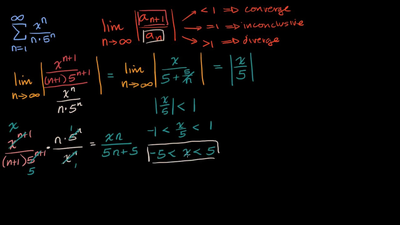 ∞
∑ xⁿ / n·5ⁿ
n=1
lim n→∞ |aₙ₊₁ / aₙ|
< 1 ⇒ converge
= 1 ⇒ inconclusive
> 1 ⇒ diverge
lim n→∞ | (xⁿ⁺¹ / (n+1)5ⁿ⁺¹) / (xⁿ / n·5ⁿ) | = lim n→∞ | x / (5 + 5/n) | = | x/5 |
| x/5 | < 1
x xⁿ⁺¹ / (n+1) 5ⁿ⁺¹ 5 · n·5ⁿ 1 / xⁿ 1 = xn / 5n+5
-1 < x/5 < 1
-5 < x < 5